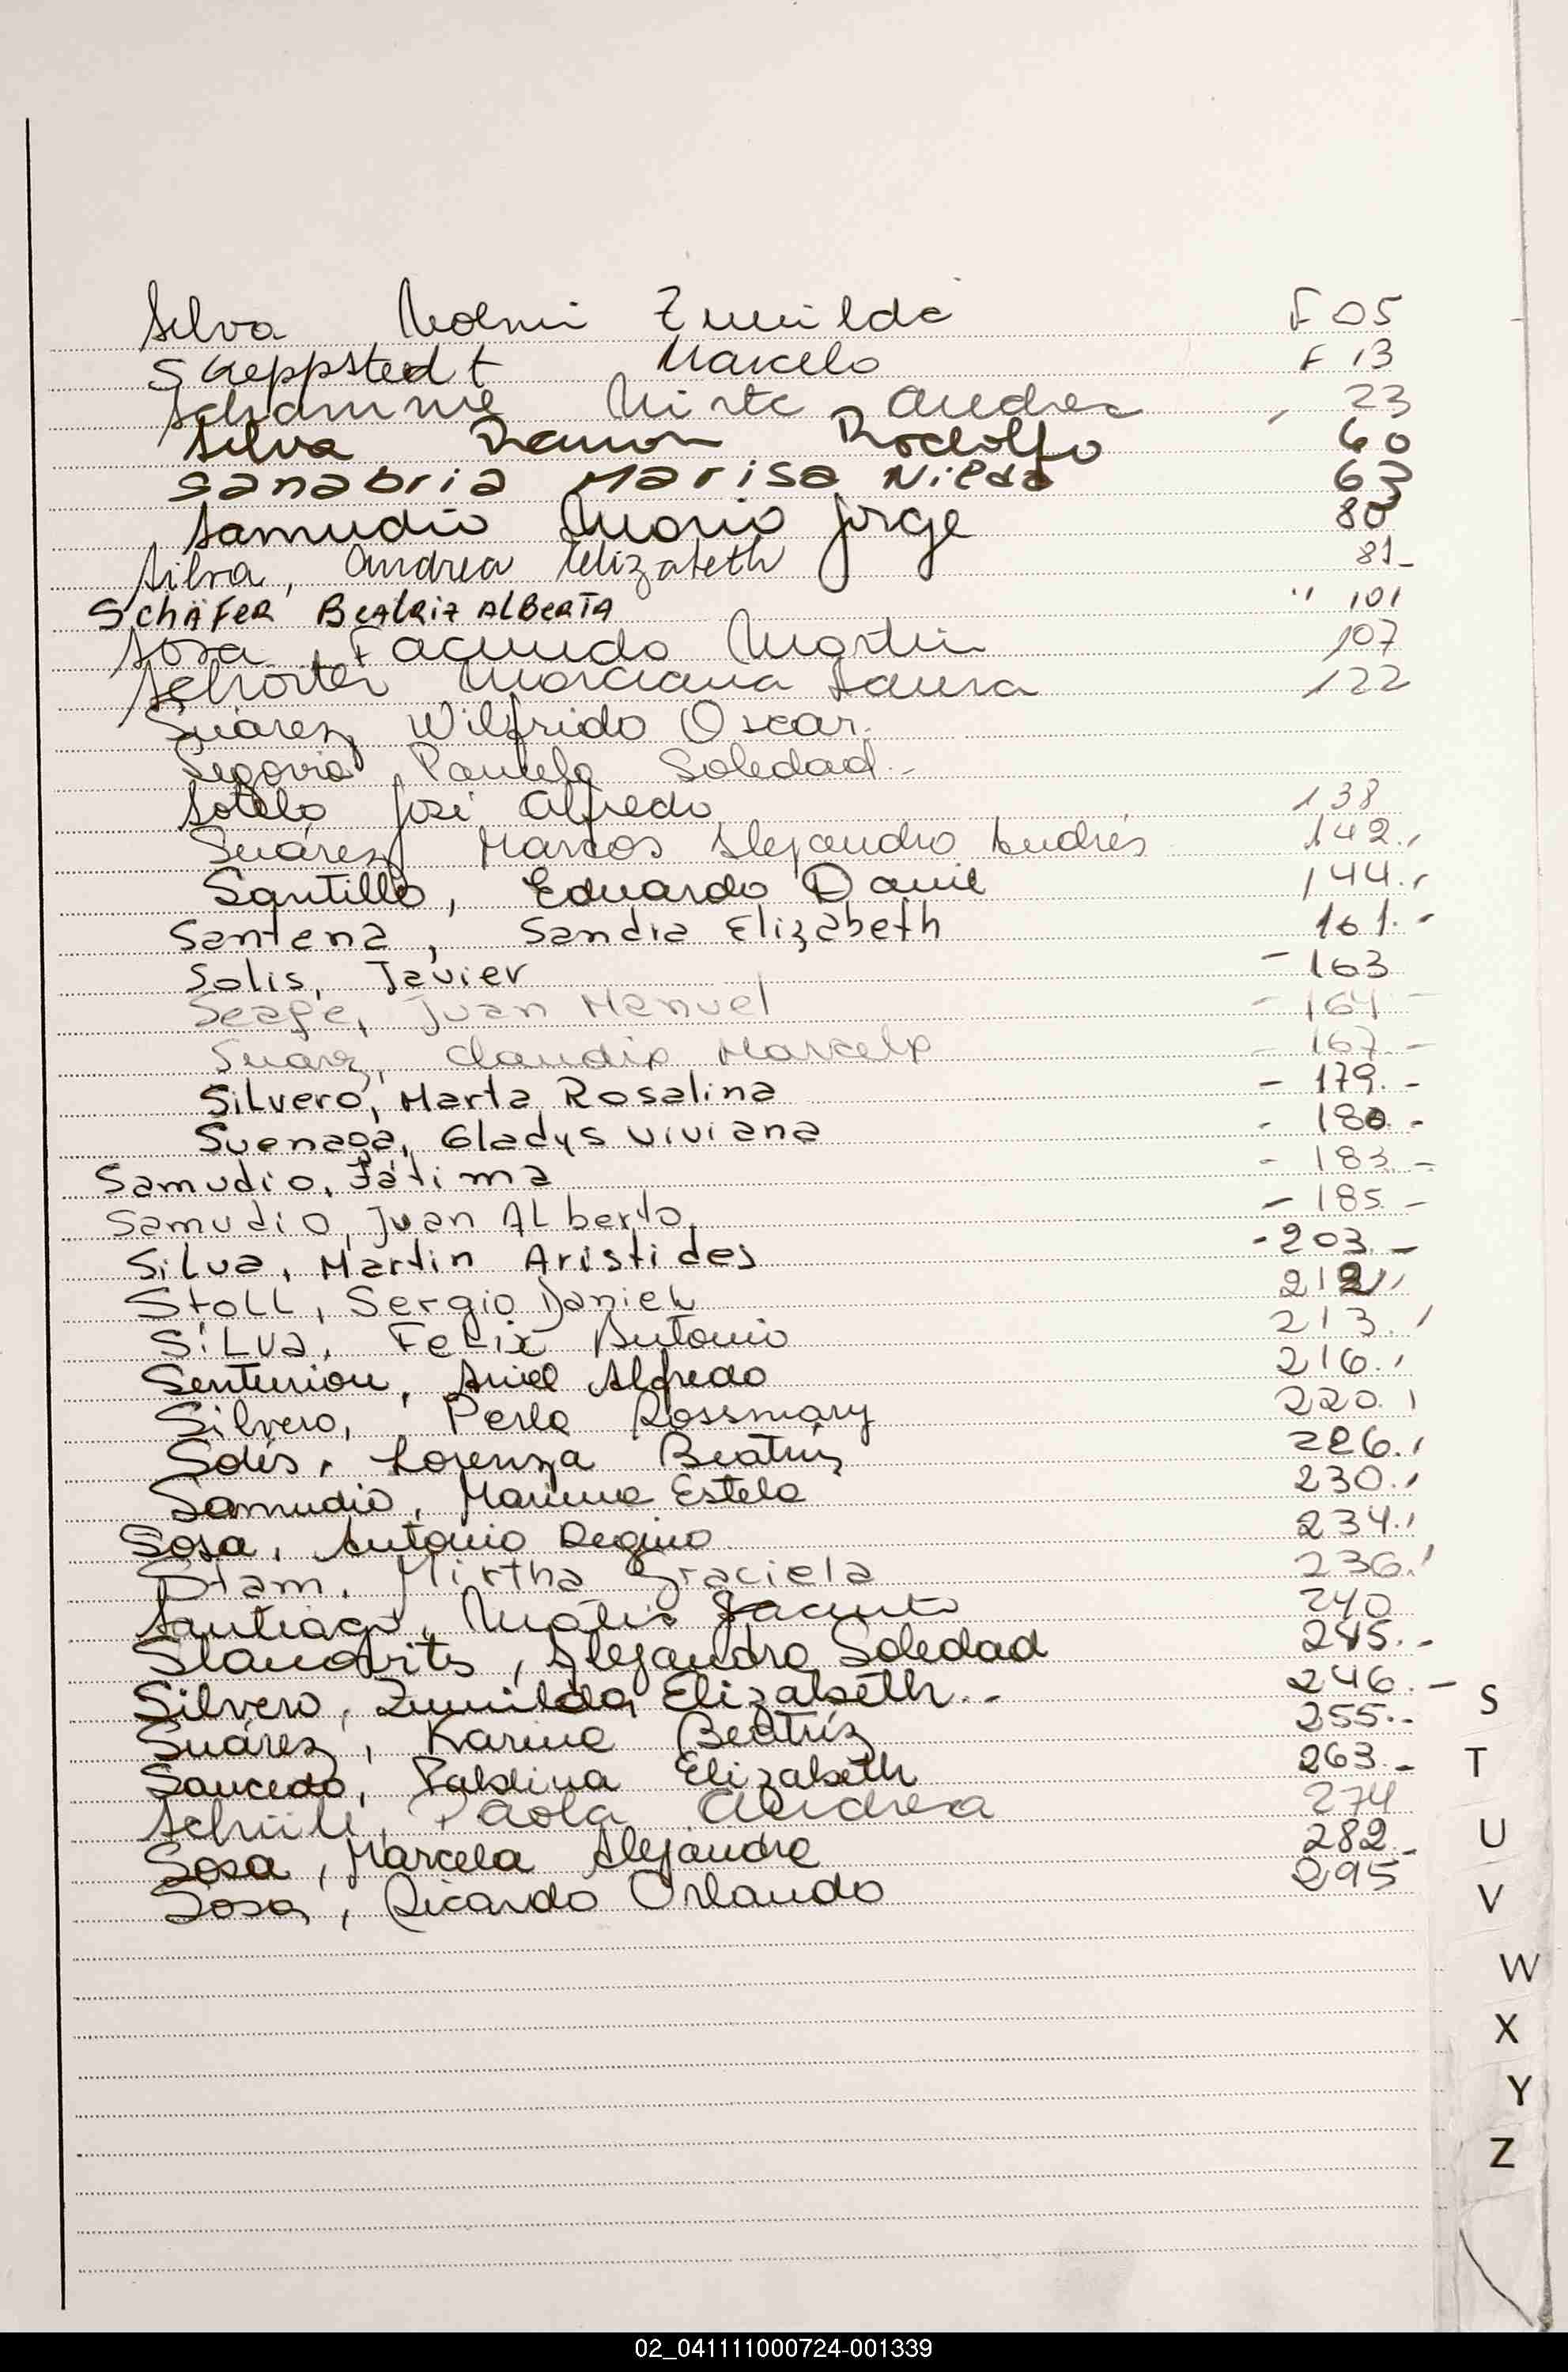 Silva Noemi Zunilda F 05
Skeppstedt Marcelo F 13
Schamne Mirta Andrea 23
Silva Ramon Rodolfo 60
Sanabria Marisa Nilda 63
Samudio Mario Jorge 80
Silva, Andrea Elizabeth 81-
SCHÄFER BEATRIZ ALBERTA " 101
Sosa Facundo Martin 107
Schroter Marciana Laura 122
Suárez Wilfrido Oscar.
Segovia Pamela Soledad.-
Sotelo José Alfredo 138
Suárez Marcos Alejandro Andrés 142.,
Santillo, Eduardo Daniel 144.,
Santena, Sandra Elizabeth 161.-
Solis, Javier - 163
Seafe, Juan Manuel - 164 -
Suarez, Claudia Marcela - 167.-
Silvero, Marta Rosalina - 179.-
Suenaga, Gladys Viviana - 180.-
Samudio, Fátima - 183.-
Samudio, Juan Alberto. - 185.-
Silva, Martin Aristides - 203.-
Stoll, Sergio Daniel 212.,
Silva, Felix Antonio 213.,
Senturion, Ariel Alfredo 216.,
Silvero, Perla Rossmary 220.,
Solis, Lorenza Beatriz 226.,
Samudio, Marina Estela 230.,
Sosa, Antonio Regino 234.,
Stam, Mirtha Graciela 236.,
Santiago, Matias Jacinto 240
Slamovits, Alejandra Soledad 245.-
Silvero, Zunilda Elizabeth.- 246.-
Suárez, Karina Beatriz 255.-
Saucedo, Pablina Elizabeth 263.-
Schüll, Paola Andrea 274
Sosa, Marcela Alejandra 282.-
Sosa, Ricardo Orlando 295
S
T
U
V
W
X
Y
Z
02_041111000724-001339